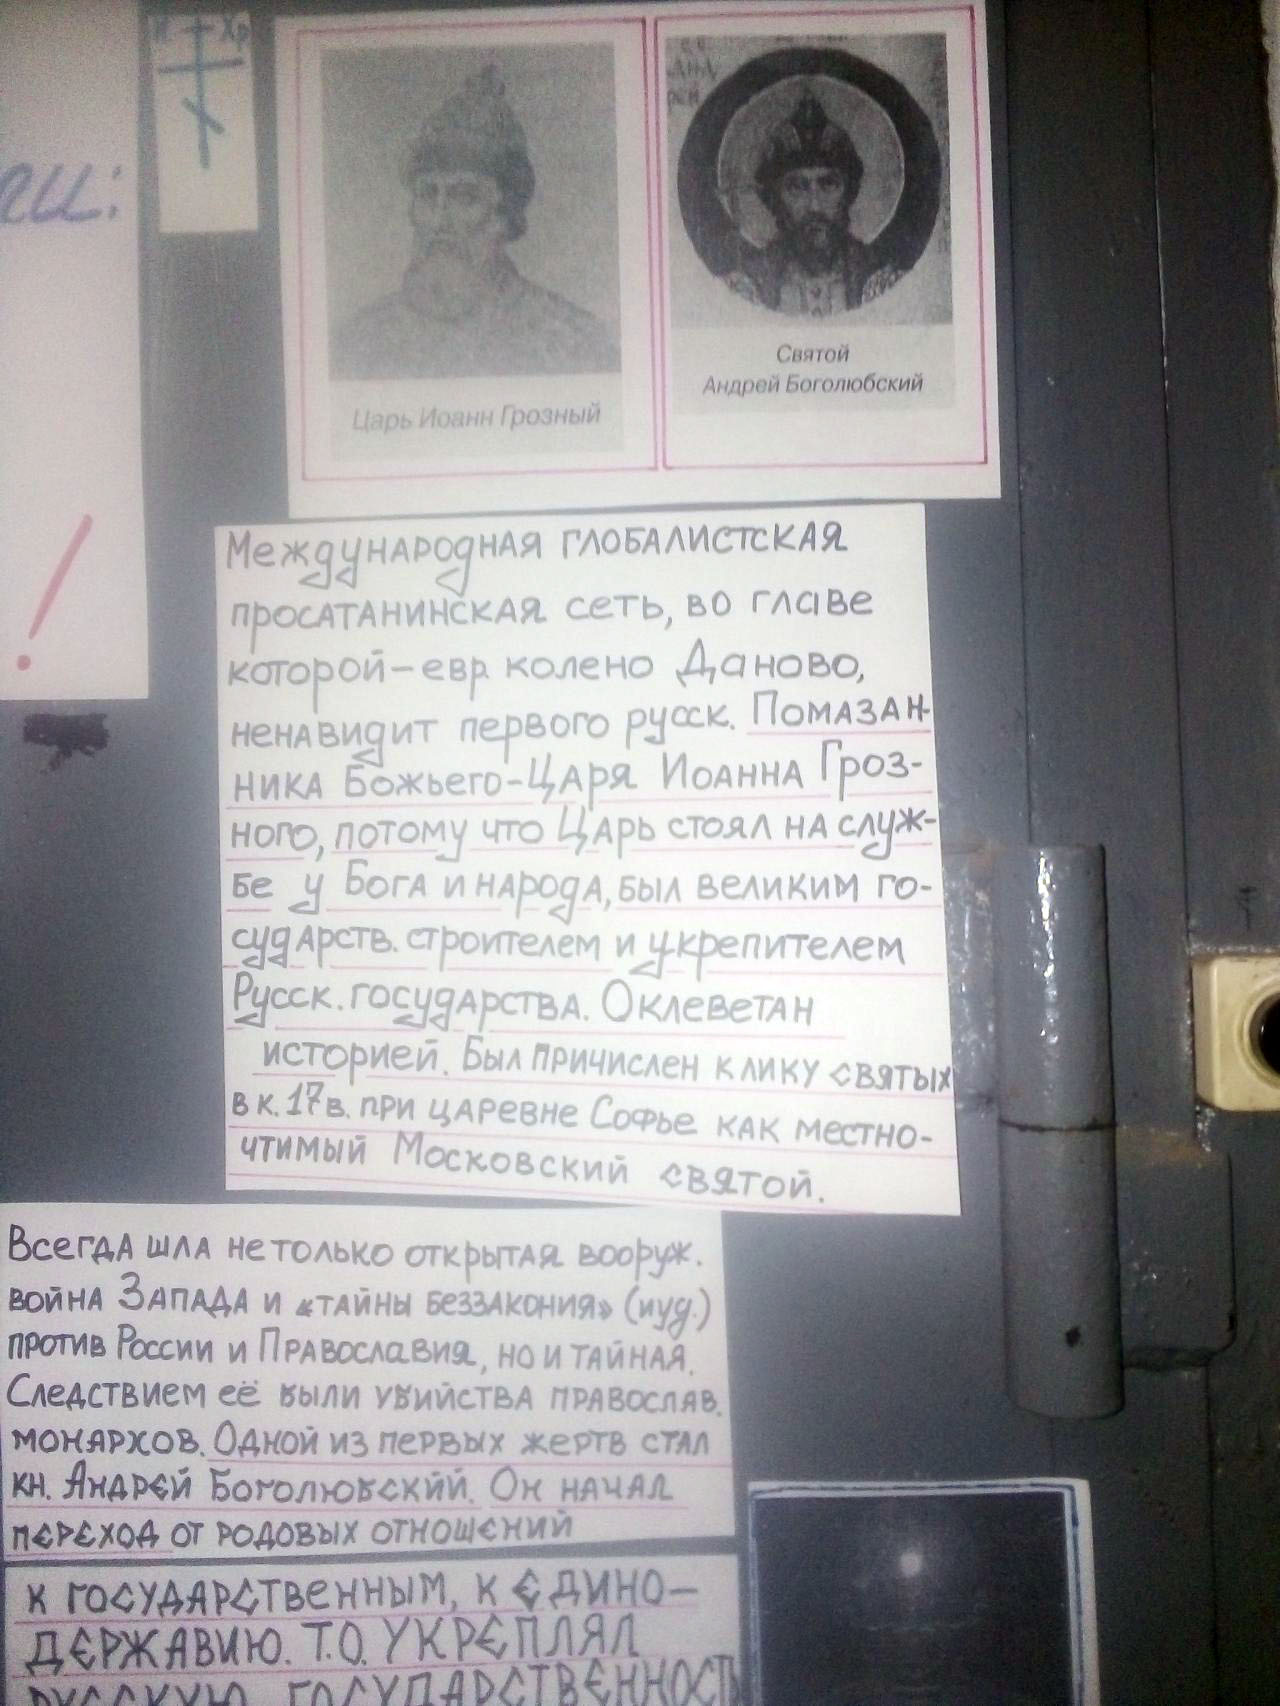 И Хр
ЕИ:
!
Царь Иоанн Грозный
Святой
Андрей Боголюбский
Международная глобалистская
просатанинская сеть, во главе
которой-евр. колено Даново,
ненавидит первого русск. Помазан-
ника Божьего-Царя Иоанна Гроз-
ного, потому что Царь стоял на служ-
бе у Бога и народа, был великим го-
сударств. строителем и укрепителем
Русск. государства. Оклеветан
историей. Был причислен к лику святых
в к. 17 в. при царевне Софье как местно-
чтимый Московский святой.
Всегда шла не только открытая вооруж.
война Запада и «тайны беззакония» (иуд.)
против России и Православия, но и тайная.
Следствием её были убийства православ.
монархов. Одной из первых жертв стал
кн. Андрей Боголюбский. Он начал
переход от родовых отношений
к государственным, к едино-
державию. Т.О. укреплял
русскую государственность